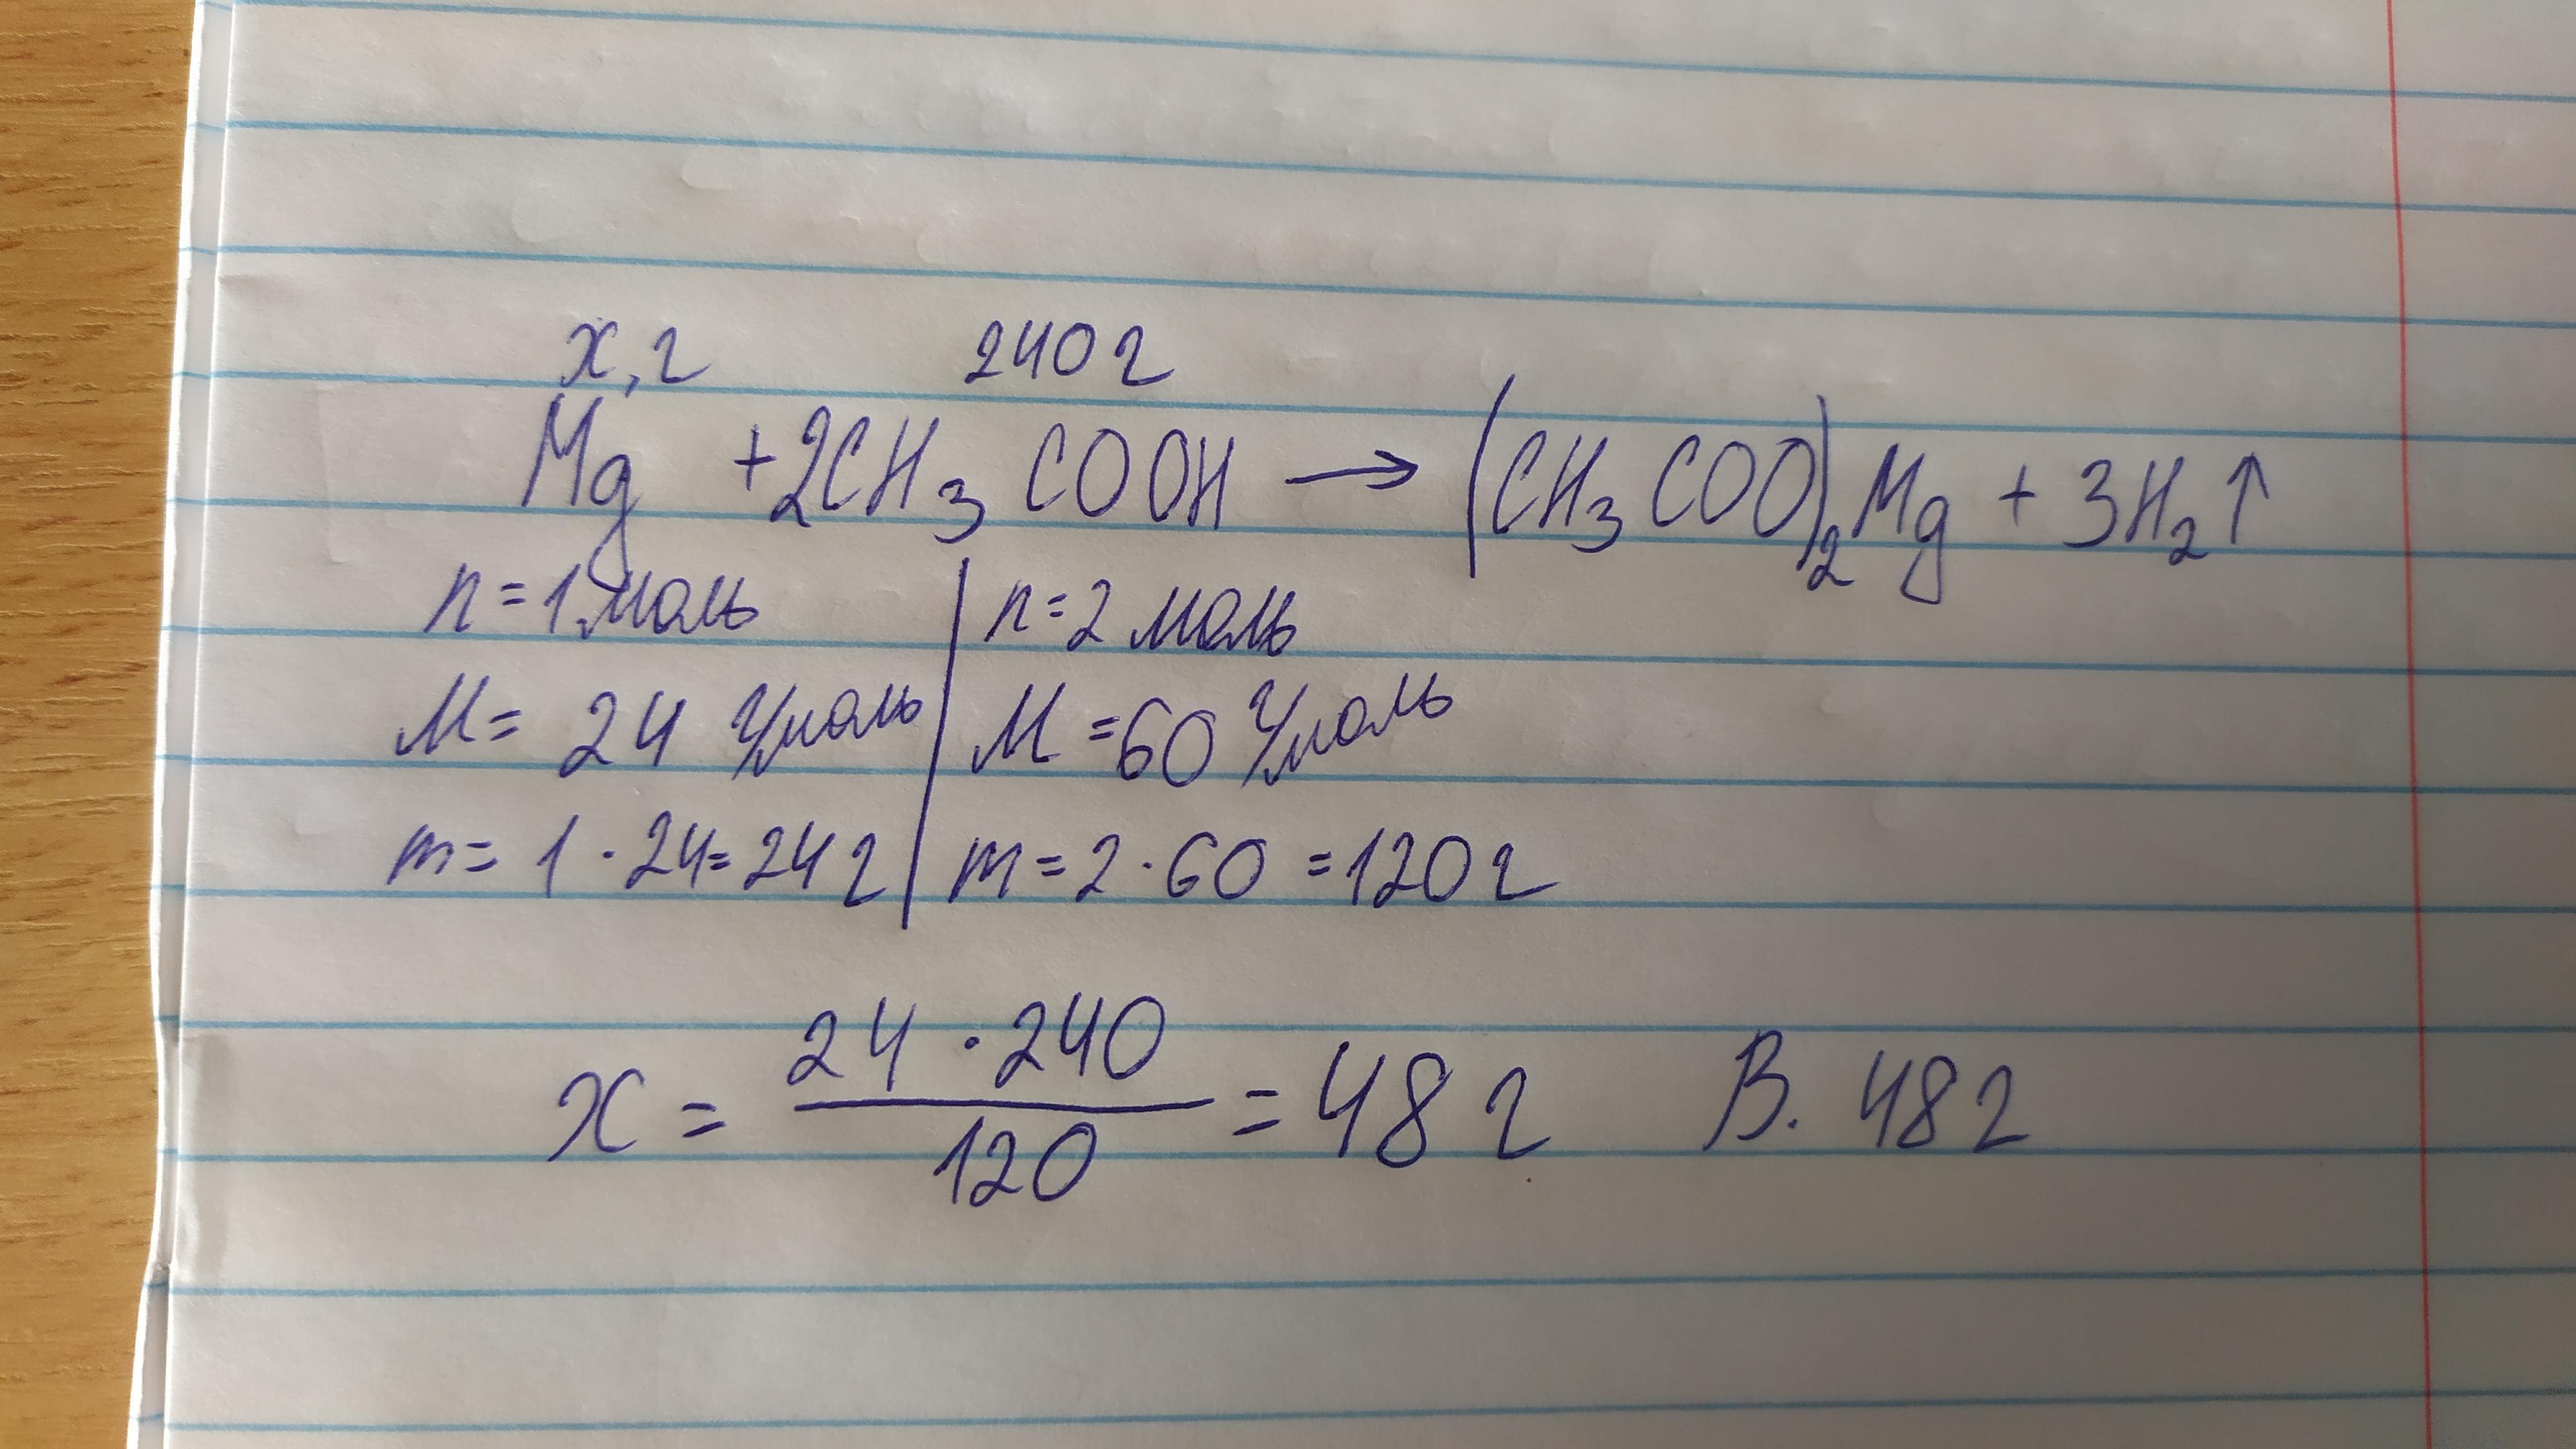 x, г 240 г
Mg + 2CH₃COOH → (CH₃COO)₂Mg + 3H₂↑
n = 1 моль | n = 2 моль
M = 24 г/моль | M = 60 г/моль
m = 1 · 24 = 24 г | m = 2 · 60 = 120 г
x = 24 · 240 / 120 = 48 г В. 48 г